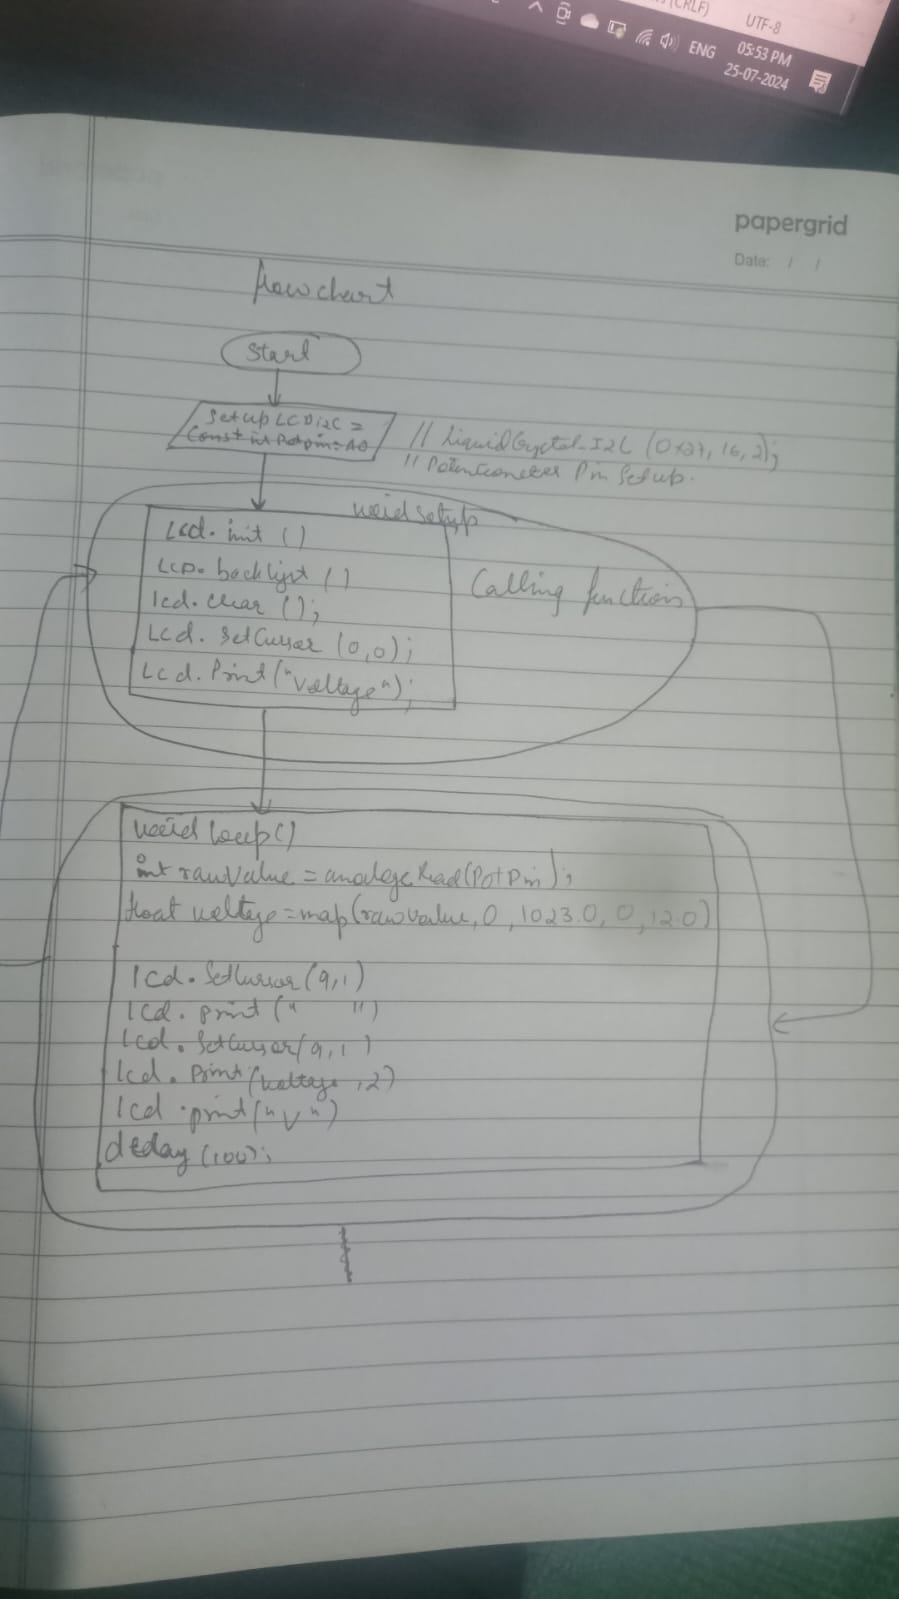 (CRLF)
UTF-8
ENG
05:53 PM
25-07-2024
papergrid
Date: / /
flowchart
Start
Setup LCD i2C =
Const int Potpin = A0
// LiquidCrystal-I2C (0x27, 16, 2);
// Potentiometer Pin Setup.
void setup
Lcd. init ()
LCD. backlight ()
lcd. clear ();
Lcd. SetCursor (0,0);
Lcd. Print ("Voltage");
Calling function
void loop()
int rawValue = analogeRead(PotPin);
float voltage = map(rawvalue, 0, 1023.0, 0, 12.0)
lcd. SetCursor (9,1)
lcd. print (" ")
Lcd. SetCursor (9,1)
lcd. Print (voltage, 2)
lcd . print ("V")
delay (100);